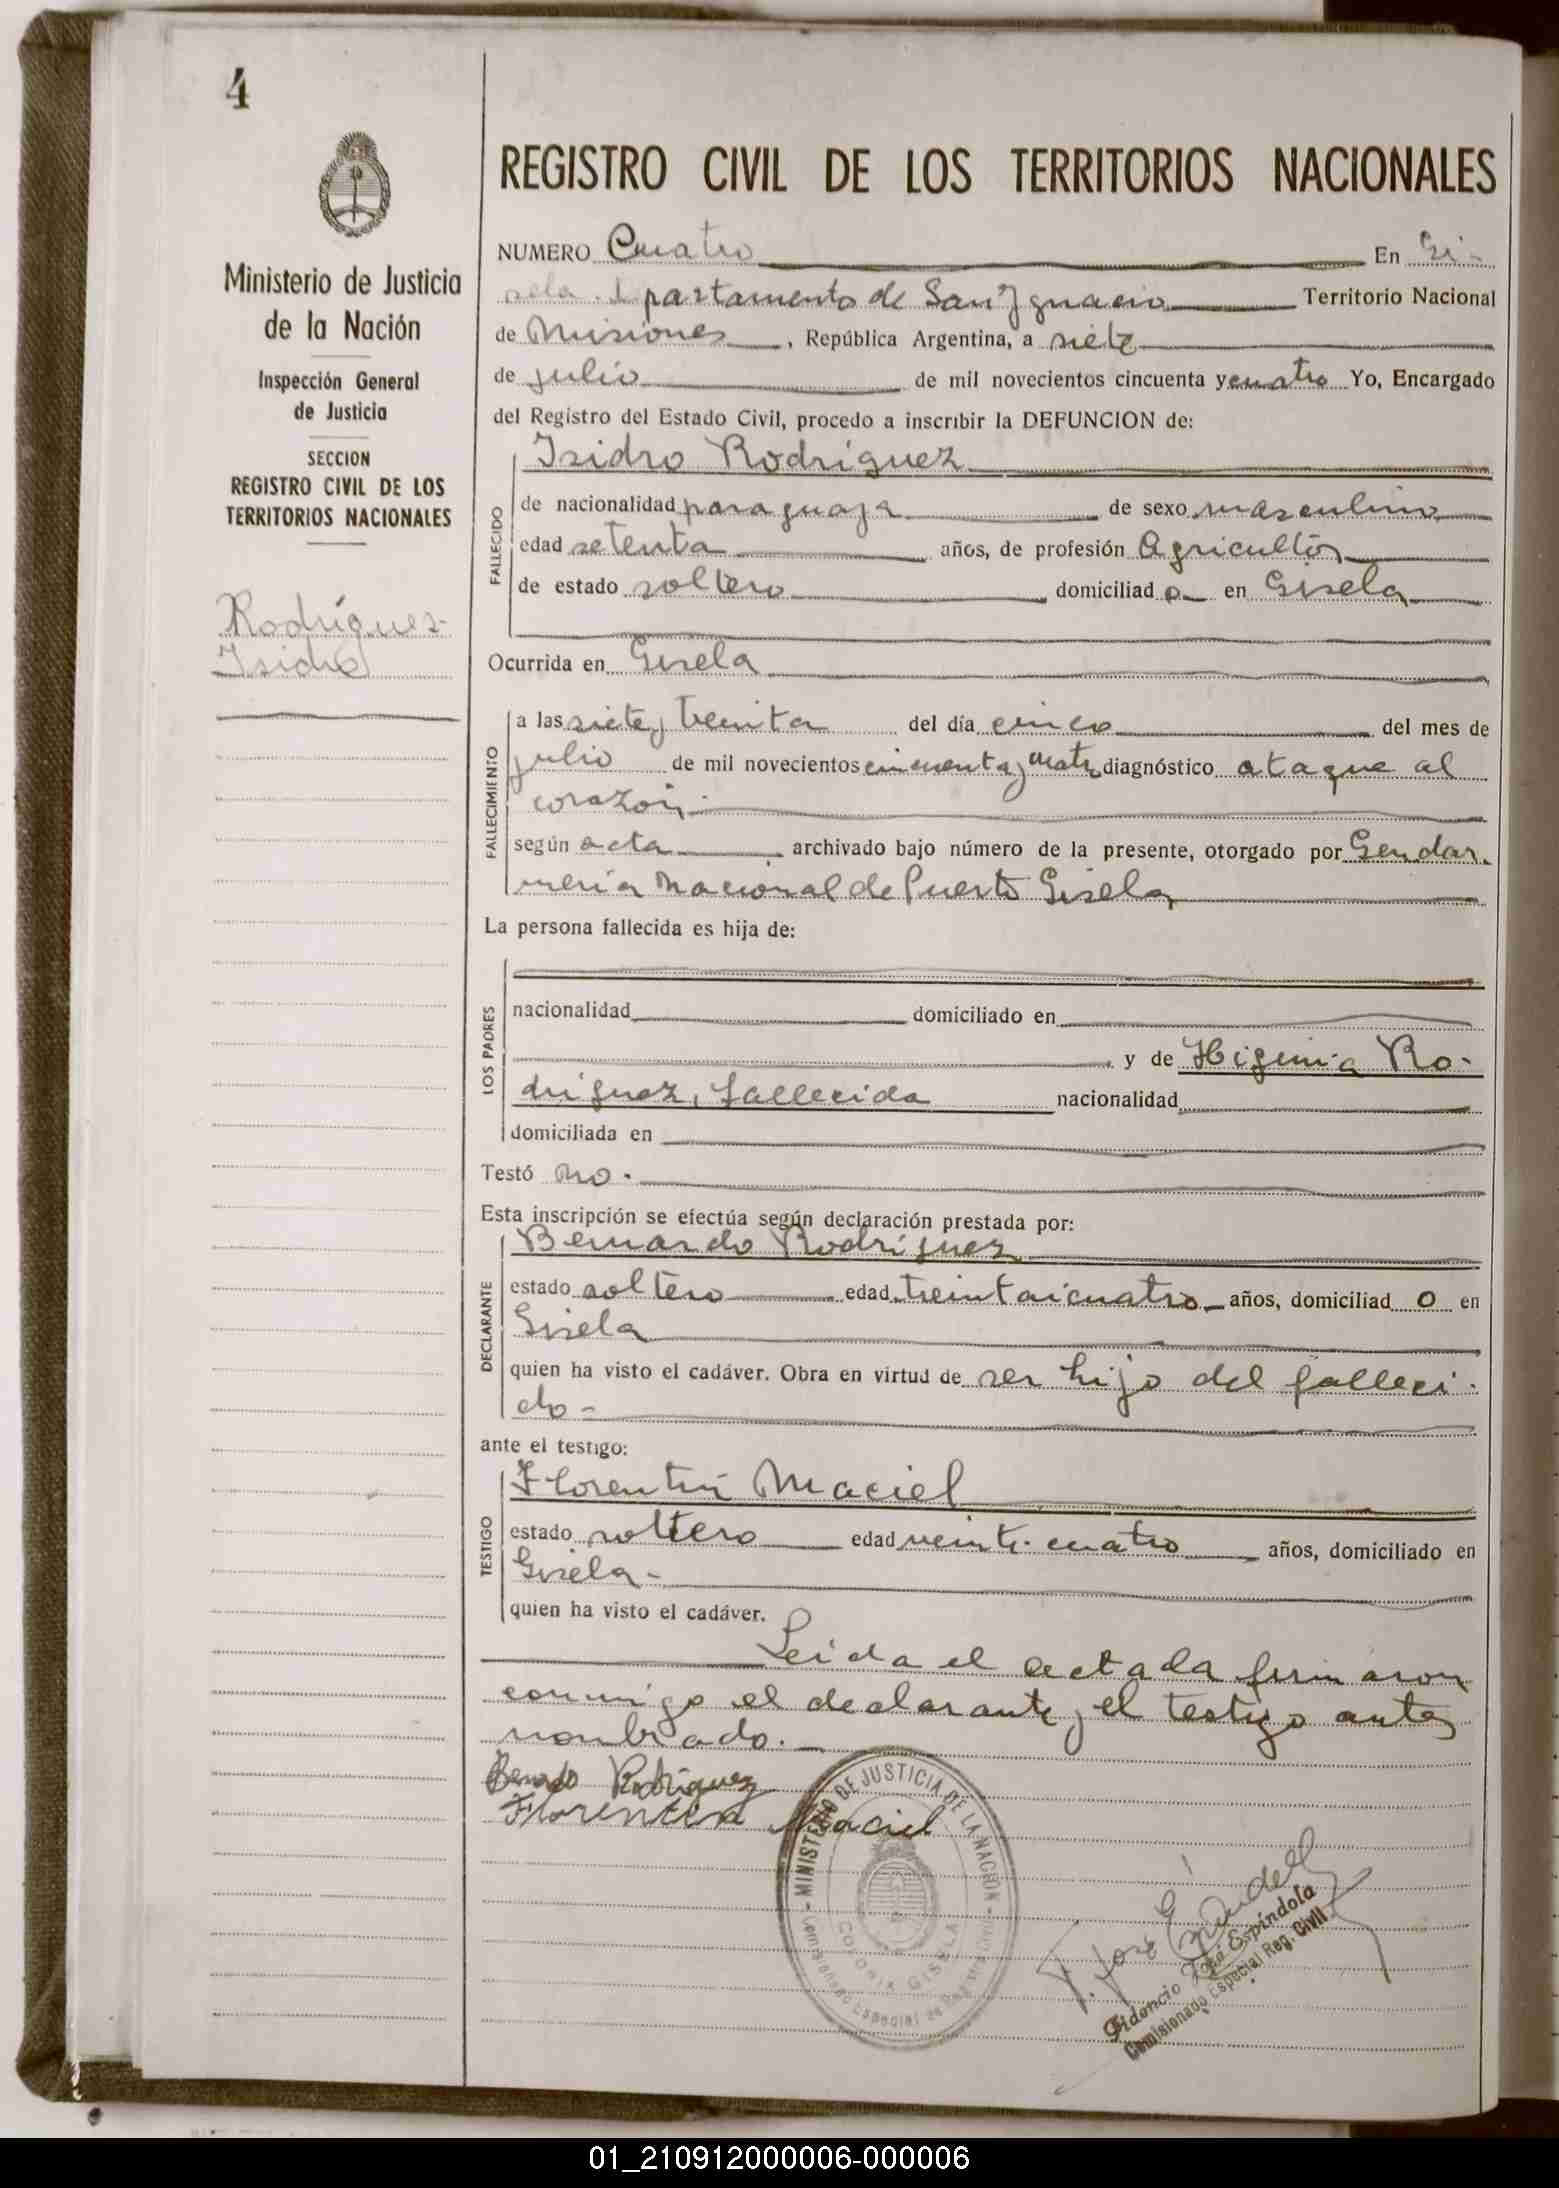 4
Ministerio de Justicia
de la Nación
Inspección General
de Justicia
SECCION
REGISTRO CIVIL DE LOS
TERRITORIOS NACIONALES
Rodríguez
Isidro
REGISTRO CIVIL DE LOS TERRITORIOS NACIONALES
NUMERO Cuatro En Gi-
sela. Departamento de San Ignacio Territorio Nacional
de Misiones, República Argentina, a siete
de julio de mil novecientos cincuenta y cuatro Yo, Encargado
del Registro del Estado Civil, procedo a inscribir la DEFUNCION de:
Isidro Rodríguez
FALLECIDO
de nacionalidad paraguaya de sexo masculino
edad setenta años, de profesión Agricultor
de estado soltero domiciliado en Gisela
Ocurrida en Gisela
FALLECIMIENTO
a las siete y treinta del día cinco del mes de
julio de mil novecientos cincuenta y cuatro diagnóstico ataque al
corazón.
según acta archivado bajo número de la presente, otorgado por Gendar-
mería Nacional de Puerto Gisela
La persona fallecida es hija de:
LOS PADRES
nacionalidad domiciliado en
y de Higinia Ro-
dríguez, fallecida nacionalidad
domiciliada en
Testó no.
Esta inscripción se efectúa según declaración prestada por:
Bernardo Rodríguez
DECLARANTE
estado soltero edad treintaicuatro años, domiciliado en
Gisela
quien ha visto el cadáver. Obra en virtud de ser hijo del falleci-
do-
ante el testigo:
Florentín Maciel
TESTIGO
estado soltero edad veinticuatro años, domiciliado en
Gisela-
quien ha visto el cadáver.
Leida el acta la firmaron
conmigo el declarante y el testigo antes
nombrado.
Bernardo Rodriguez
Florentin Maciel
MINISTERIO DE JUSTICIA DE LA NACION
COLONIA GISELA
Comisionado Especial de Registro Civil
F. José Espíndola
Fidencio José Espíndola
Comisionado Especial Reg. Civil
01_210912000006-000006